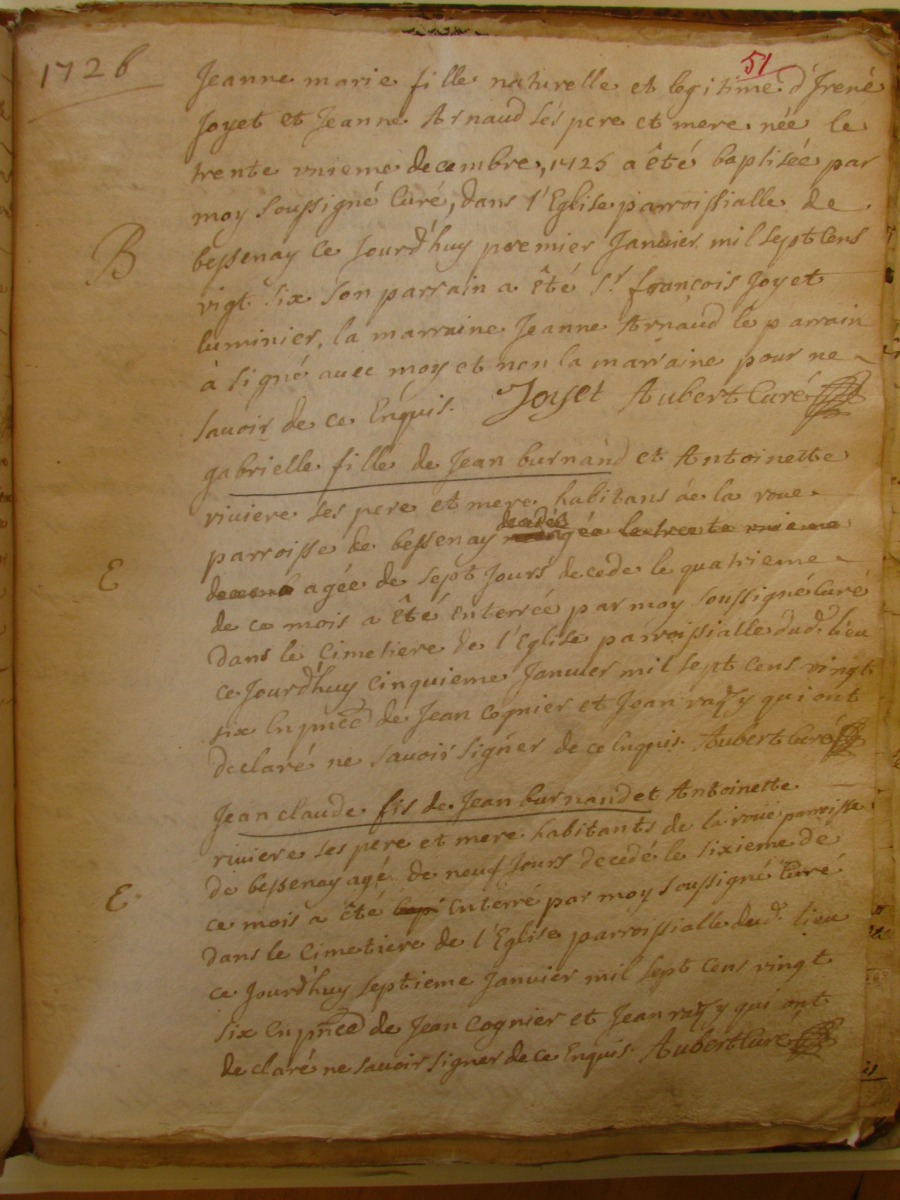 1726
51
Jeanne marie fille naturelle et legitime d'Irené
Joyet et Jeanne Arnaud ses pere et mere née le
trente unieme decembre, 1725 a été baptisée par
moy soussigné Curé, dans l'Eglise parroissialle de
bessenay ce Jourd'huy premier Janvier mil sept cens
vigt six son parrain a été Sr. françois Joyet
luminier, la marraine Jeanne Arnaud le parrain
à signé avec moy et non la marraine pour ne
savoir de ce Enquis. Joyet Aubert Curé
B
gabrielle fille de Jean burnand et Antoinette
riviere ses pere et mere habitans de la roue
parroisse de bessenay agée le trente unieme
agée de sept Jours decede le quatrieme
de ce mois a été Enterrée par moy soussigné Curé
dans le Cimetiere de l'Eglise parroissialle dud. lieu
ce Jourd'huy cinquieme Janvier mil sept cens vingt
six En pnce de Jean Cognier et Jean qui ont
declaré ne savoir signer de ce Enquis. Aubert Curé
E
Jean claude fis de Jean burnand et Antoinette
riviere ses pere et mere habitants de la roüe parroisse
de bessenay agé de neuf Jours decedé le sixieme de
ce mois a été bapt Enterré par moy soussigné Curé
dans le Cimetiere de l'Eglise parroissialle dud. lieu
ce Jourd'huy septieme Janvier mil sept cens vingt
six En pnce de Jean Cognier et Jean qui ont
declaré ne savoir signer de ce Enquis. Aubert Curé
E